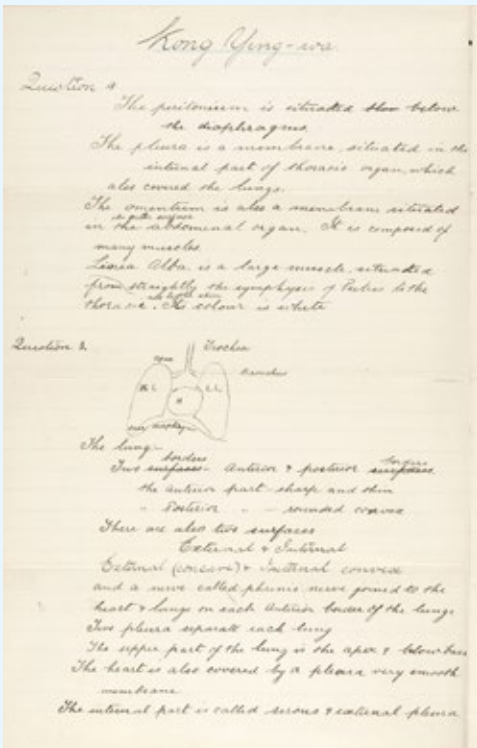 Kong Ying-wa
Question 4
The peritoneum is situated below
the diaphragms
The pleura is a membrane, situated in the
internal part of thoracic organ, which
also covered the lungs.
The omentum is also a membrane situated
in the abdominal organ. It is composed of
many muscles
Linea Alba is a large muscle, situated
from straightly the symphysis of Pubes to the
thoracic. Its colour is white
Question 3.
apex Trachea
Bronchus
R.L. L.L.
H
The lung-
borders borders
Two surfaces - Anterior & posterior surfaces
the anterior part - sharp and thin
" Posterior " - rounded convex
There are also two surfaces
External & Internal
External (concave) & Internal convex
and a nerve called phrenic nerve joined to the
heart & lungs on each Anterior border of the lungs
Two pleura separate each lung
The upper part of the lung is the apex & below base
The heart is also covered by a pleura very smooth
membrane
The internal part is called serous & external pleura